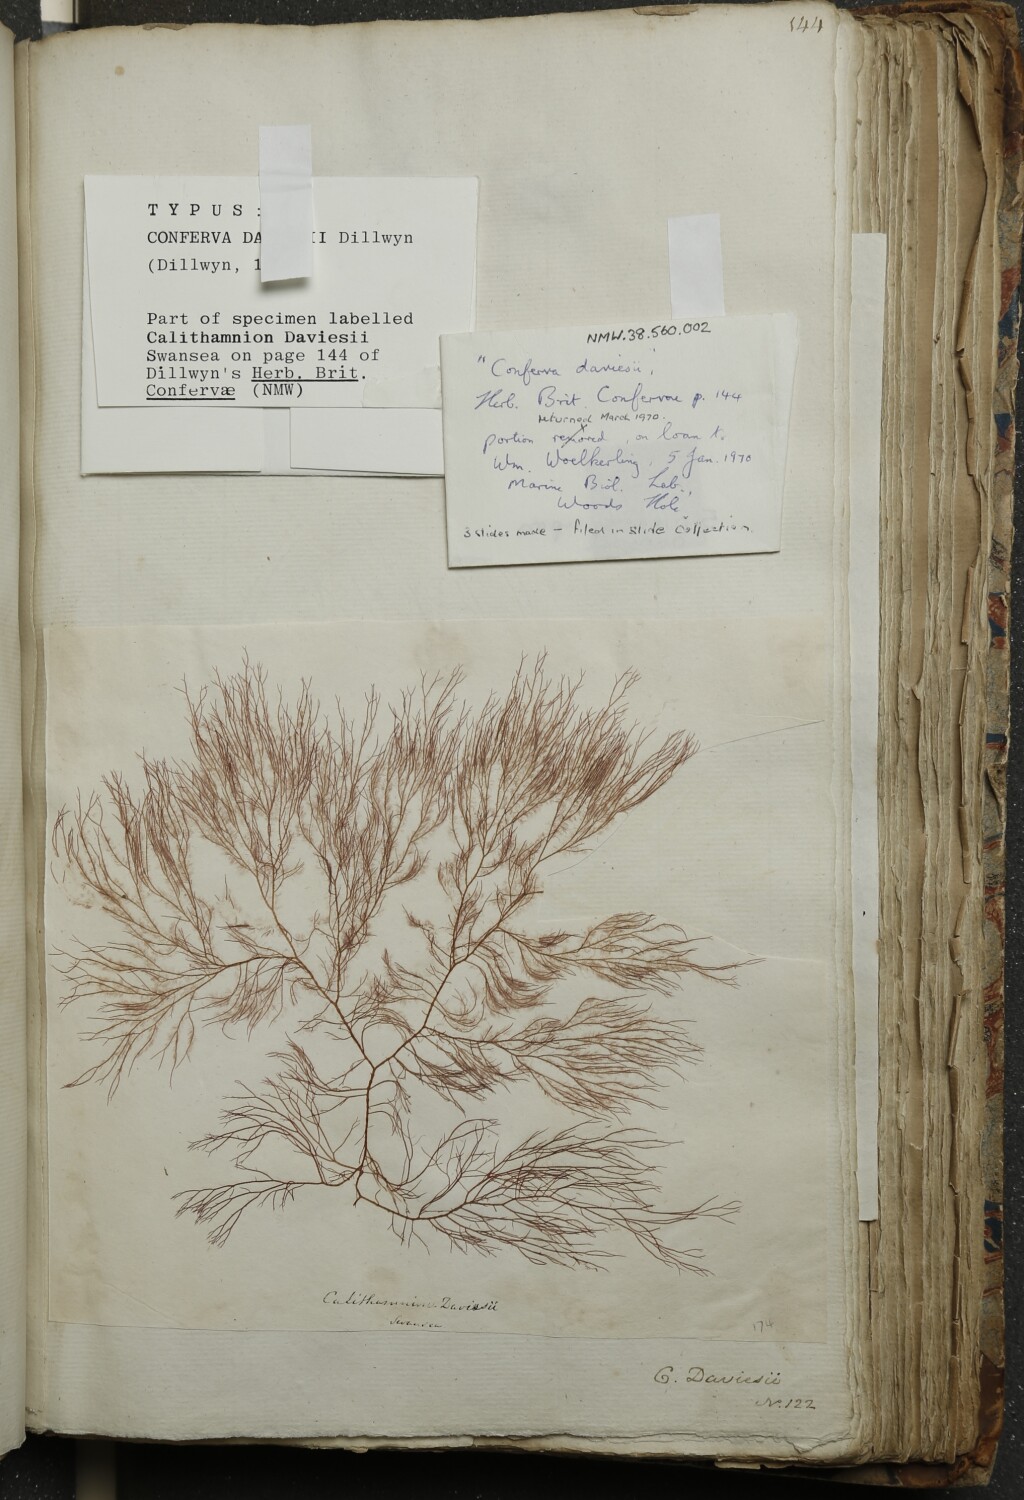 144
TYPUS:
CONFERVA DA II Dillwyn
(Dillwyn, 1
Part of specimen labelled
Calithamnion Daviesii
Swansea on page 144 of
Dillwyn's Herb. Brit.
Confervæ (NMW)
NMW.38.560.002
"Conferva daviesii",
Herb. Brit. Confervae p. 144
returned March 1970.
portion removed, on loan to
Wm. Woelkerling, 5 Jan. 1970
Marine Biol. Lab.,
Woods Hole
3 slides made – filed in slide collection.
Calithamnion Daviesii
Swansea
174
C. Daviesii
No. 122